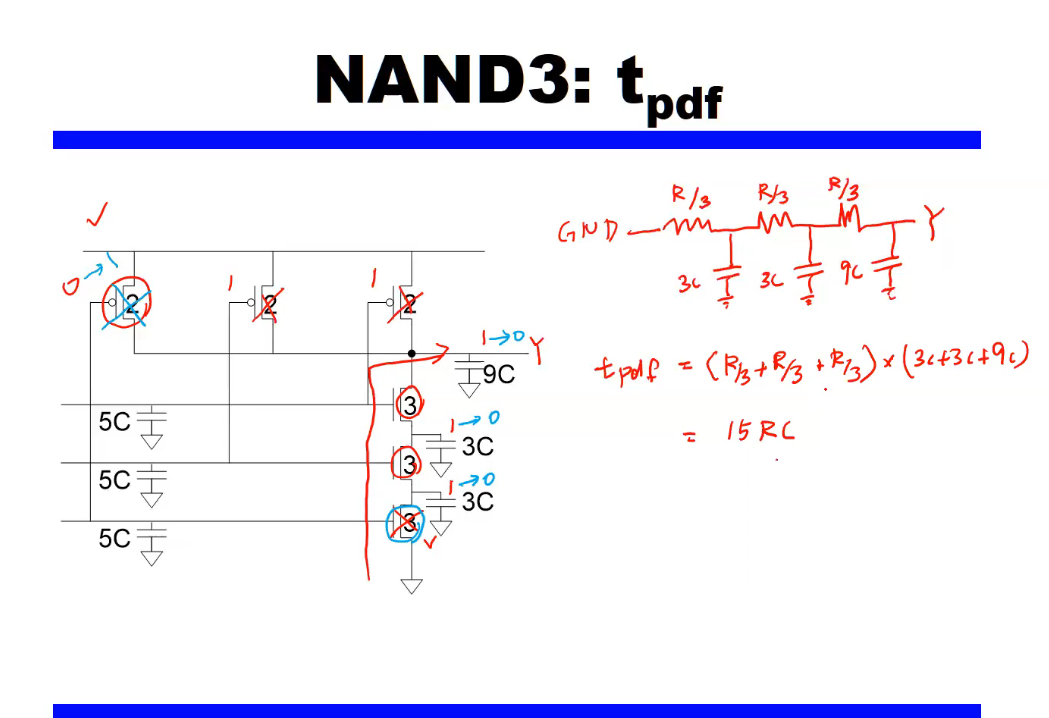 NAND3: tpdf
✓
0→1
1
1
2
2
2
1→0 Y
9C
3
5C
1→0
3C
3
5C
1→0
3C
3
5C
✓
R/3 R/3 R/3
GND Y
3C 3C 9C
tpdf = (R/3+R/3+R/3)×(3C+3C+9C)
= 15RC